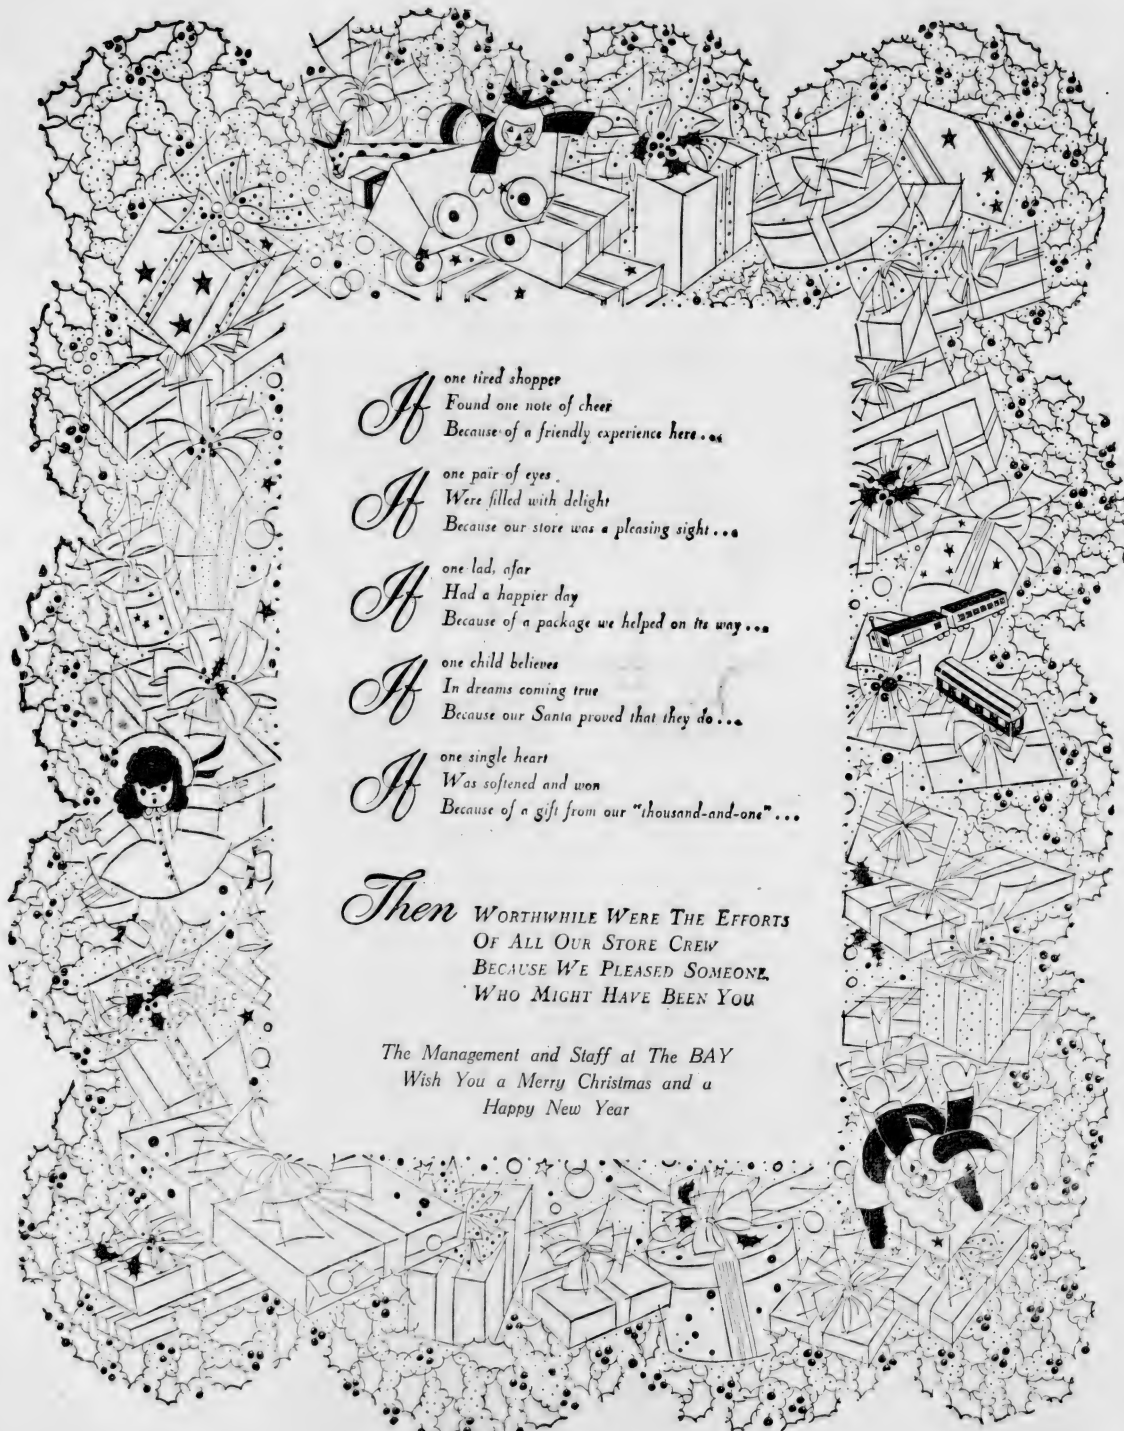 If one tired shopper
Found one note of cheer
Because of a friendly experience here...
If one pair of eyes
Were filled with delight
Because our store was a pleasing sight...
If one lad, afar
Had a happier day
Because of a package we helped on its way...
If one child believes
In dreams coming true
Because our Santa proved that they do...
If one single heart
Was softened and won
Because of a gift from our "thousand-and-one"...
Then WORTHWHILE WERE THE EFFORTS
OF ALL OUR STORE CREW
BECAUSE WE PLEASED SOMEONE
WHO MIGHT HAVE BEEN YOU
The Management and Staff at The BAY
Wish You a Merry Christmas and a
Happy New Year